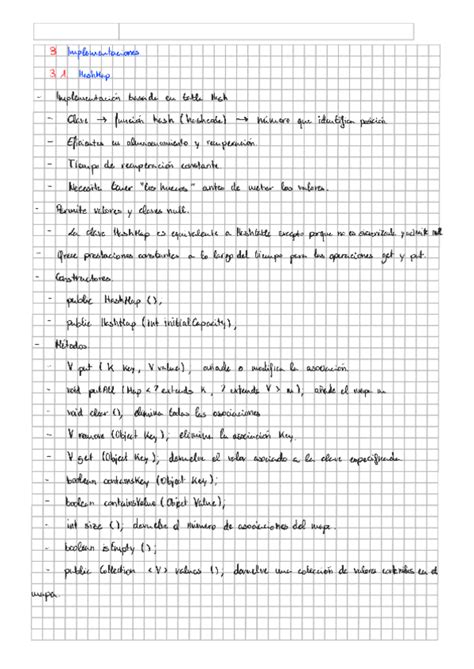 3 Implementaciones
3.1 HashMap
- Implementación basada en tabla Hash
- Clave → función hash (hashcode) → número que identifica posición
- Eficientes en almacenamiento y recuperación.
- Tiempo de recuperación constante.
- Necesita hacer "los huecos" antes de meter los valores.
- Permite valores y claves null.
- La clase HashMap es equivalente a Hashtable excepto porque no es sincronizada y admite null
- Ofrece prestaciones constantes a lo largo del tiempo para las operaciones get y put.
- Constructores
- public HashMap ();
- public HashMap (int initialCapacity);
- Métodos
- V put (K key, V value); añade o modifica la asociación.
- void putAll (Map <? extends K, ? extends V> m); añade el mapa m
- void clear (); elimina todas las asociaciones
- V remove (Object key); elimina la asociación key.
- V get (Object key); devuelve el valor asociado a la clave especificada
- boolean containsKey (Object key);
- boolean containsValue (Object Value);
- int size (); devuelve el número de asociaciones del mapa.
- boolean isEmpty ();
- public Collection <V> values (); devuelve una colección de valores contenidos en el
mapa.